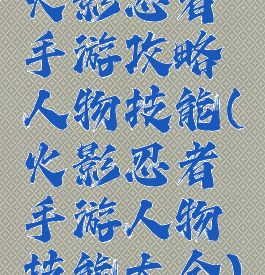 火影忍者
手游攻略
人物技能(
火影忍者
手游人物
技能大全)